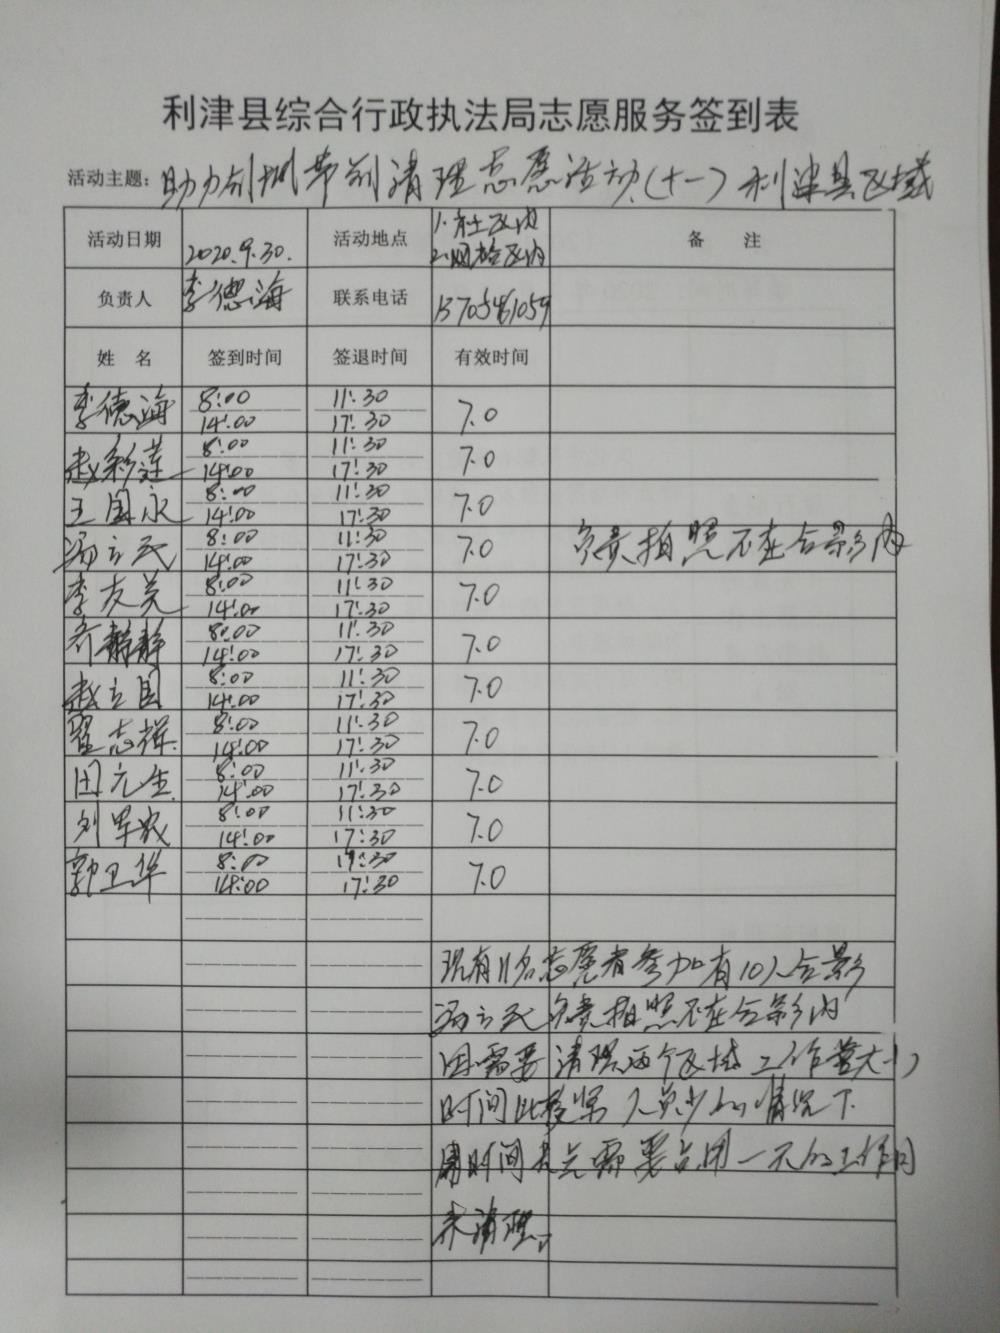 利津县综合行政执法局志愿服务签到表
活动主题：助力创城节前清理志愿活动（十一）利津县区域
活动日期 2020.9.30. 活动地点 1.社区内 备 注
2.网格区内
负责人 李德海 联系电话
姓 名 签到时间 签退时间 有效时间
李德海 8:00 11:30 7.0
14:00 17:30
赵彩莲 8:00 11:30 7.0
14:00 17:30
王国永 8:00 11:30 7.0
14:00 17:30
冯立民 8:00 11:30 7.0 负责拍照不在合影内
14:00 17:30
李友美 8:00 11:30 7.0
14:00 17:30
乔静静 8:00 11:30 7.0
14:00 17:30
赵立国 8:00 11:30 7.0
14:00 17:30
翟志辉 8:00 11:30 7.0
14:00 17:30
田元生 8:00 11:30 7.0
14:00 17:30
刘军成 8:00 11:30 7.0
14:00 17:30
郭卫华 8:00 11:30 7.0
14:00 17:30
现有11名志愿者参加有10人合影
冯立民负责拍照不在合影内
因需要清理两个区域工作量大,
时间比较紧 人员少的情况下
时间 需要占用一天的工作时间
来清理。